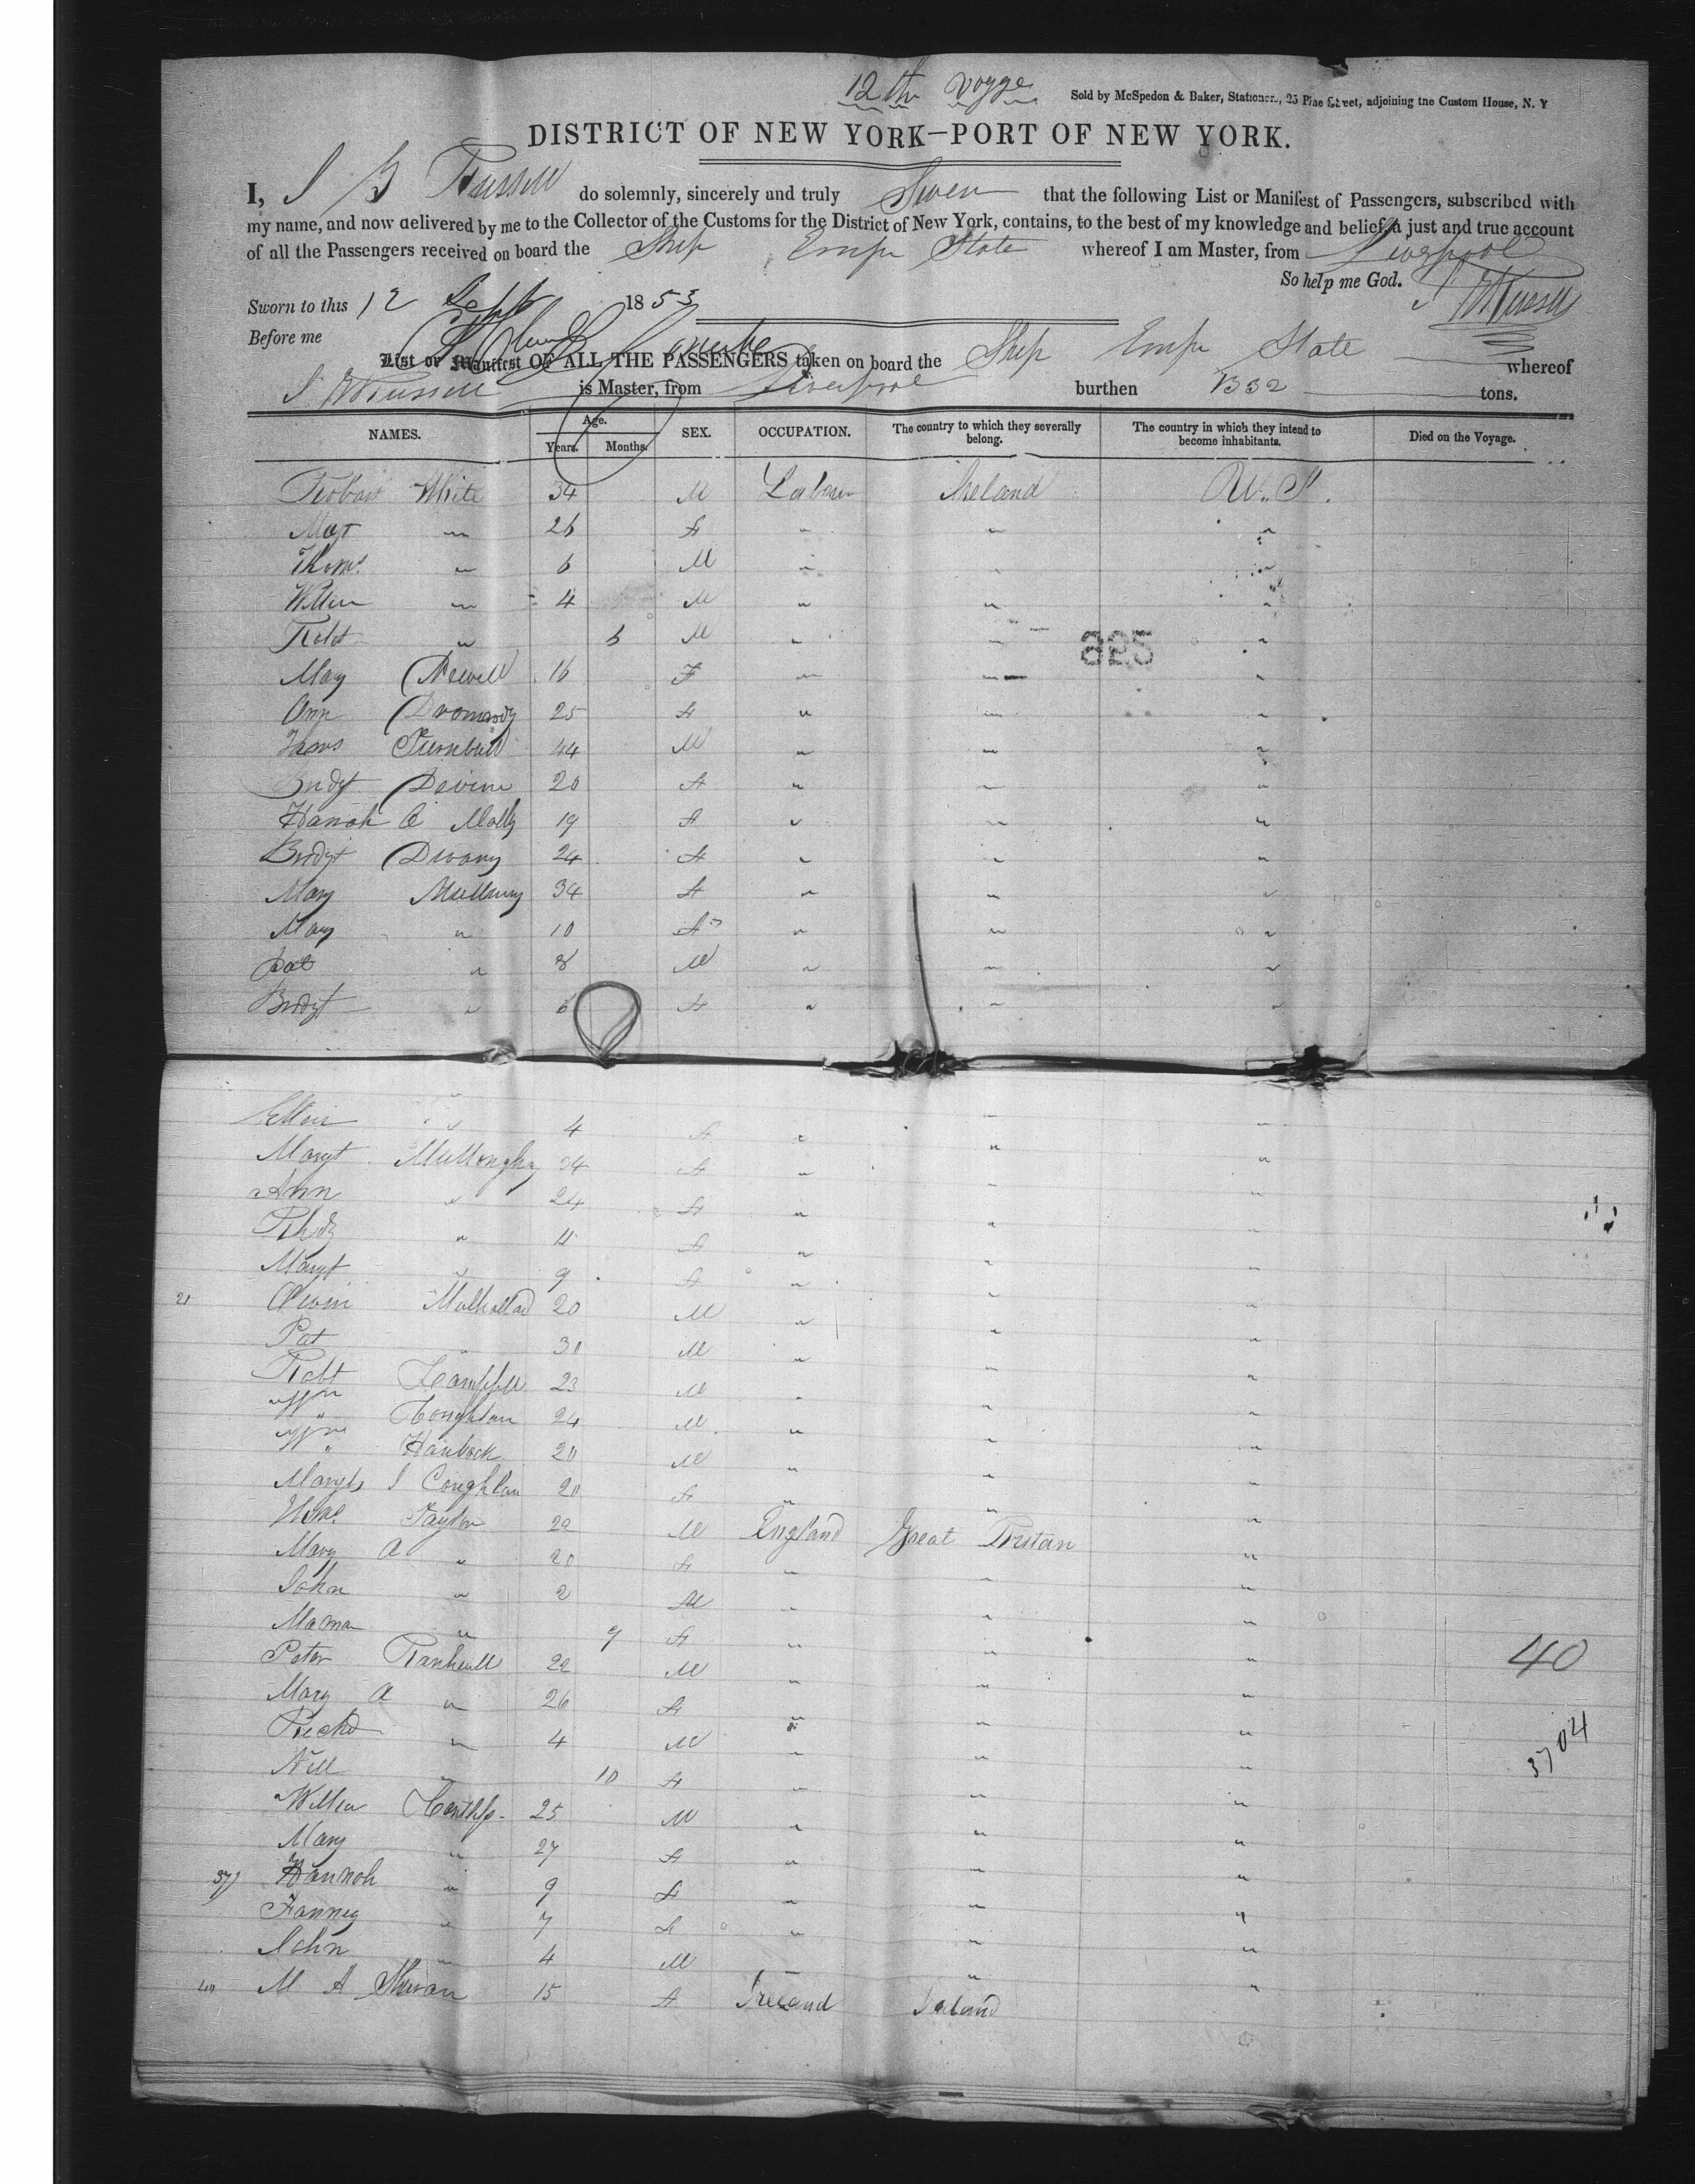 12th Voyge
Sold by McSpedon & Baker, Stationers, 25 Pine Street, adjoining the Custom House, N. Y
DISTRICT OF NEW YORK—PORT OF NEW YORK.
I, J Russell do solemnly, sincerely and truly Swear that the following List or Manifest of Passengers, subscribed with
my name, and now delivered by me to the Collector of the Customs for the District of New York, contains, to the best of my knowledge and belief, a just and true account
of all the Passengers received on board the Ship Empr State whereof I am Master, from Liverpool
So help me God. Russell
Sworn to this 12 Sept 1853
Before me
List or Manifest OF ALL THE PASSENGERS taken on board the Ship Empr State whereof
Russell is Master, from Liverpool burthen 1332 tons.
NAMES. Age. Years. Months. SEX. OCCUPATION. The country to which they severally belong. The country in which they intend to become inhabitants. Died on the Voyage.
Robart White 34 M Labour Ireland U. S.
Magt " 26 F " " "
Thoms " 6 M " " "
Willm " 4 M " " "
Robt " 6 M " " "
325
Mary Newell 16 F " " "
Ann Dromody 25 F " " "
Jams Turnbull 44 M " " "
Bridgt Devine 20 F " " "
Hanah O Mally 19 F " " "
Bridgt Divany 24 F " " "
Mary 34 F " " "
Mary " 10 F " " "
Pat " 8 M " " "
Bridgt " 6 F " " "
Ellen " 4 F " " "
Margt 34 F " " "
Ann " 24 F " " "
" 11 F " " "
Margt " 9 F " " "
21 Owin Mulhollad 20 M " " "
Pat " 30 M " " "
Robt Campbell 23 M " " "
Wm Coughlan 24 M " " "
Wm 20 M " " "
Margt J Coughlan 20 F " " "
Wm Taylor 22 M England Great Britan "
Mary A " 20 F " " "
John " 2 M " " "
" 9 F " " "
40
Peter 22 M " " "
Mary A " 26 F " " "
Richd " 4 M " " "
3704
Nell " 10 F " " "
Willm 25 M " " "
Mary " 27 F " " "
37 Hannah " 9 F " " "
Fanney " 7 F " " "
John " 4 M " " "
40 M A 15 F Ireland Ireland "